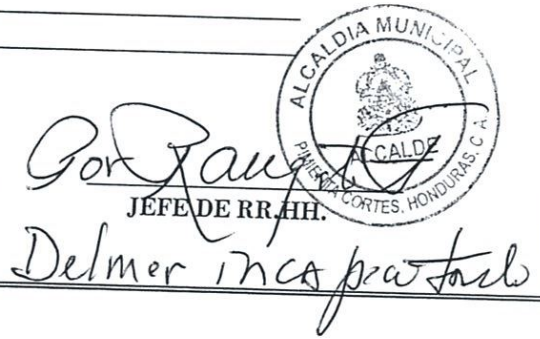 ALCALDIA MUNICIPAL
ALCALDE
PIMIENTA CORTES, HONDURAS, C.A.
Por
JEFE DE RR.HH.
Delmer incapacitado